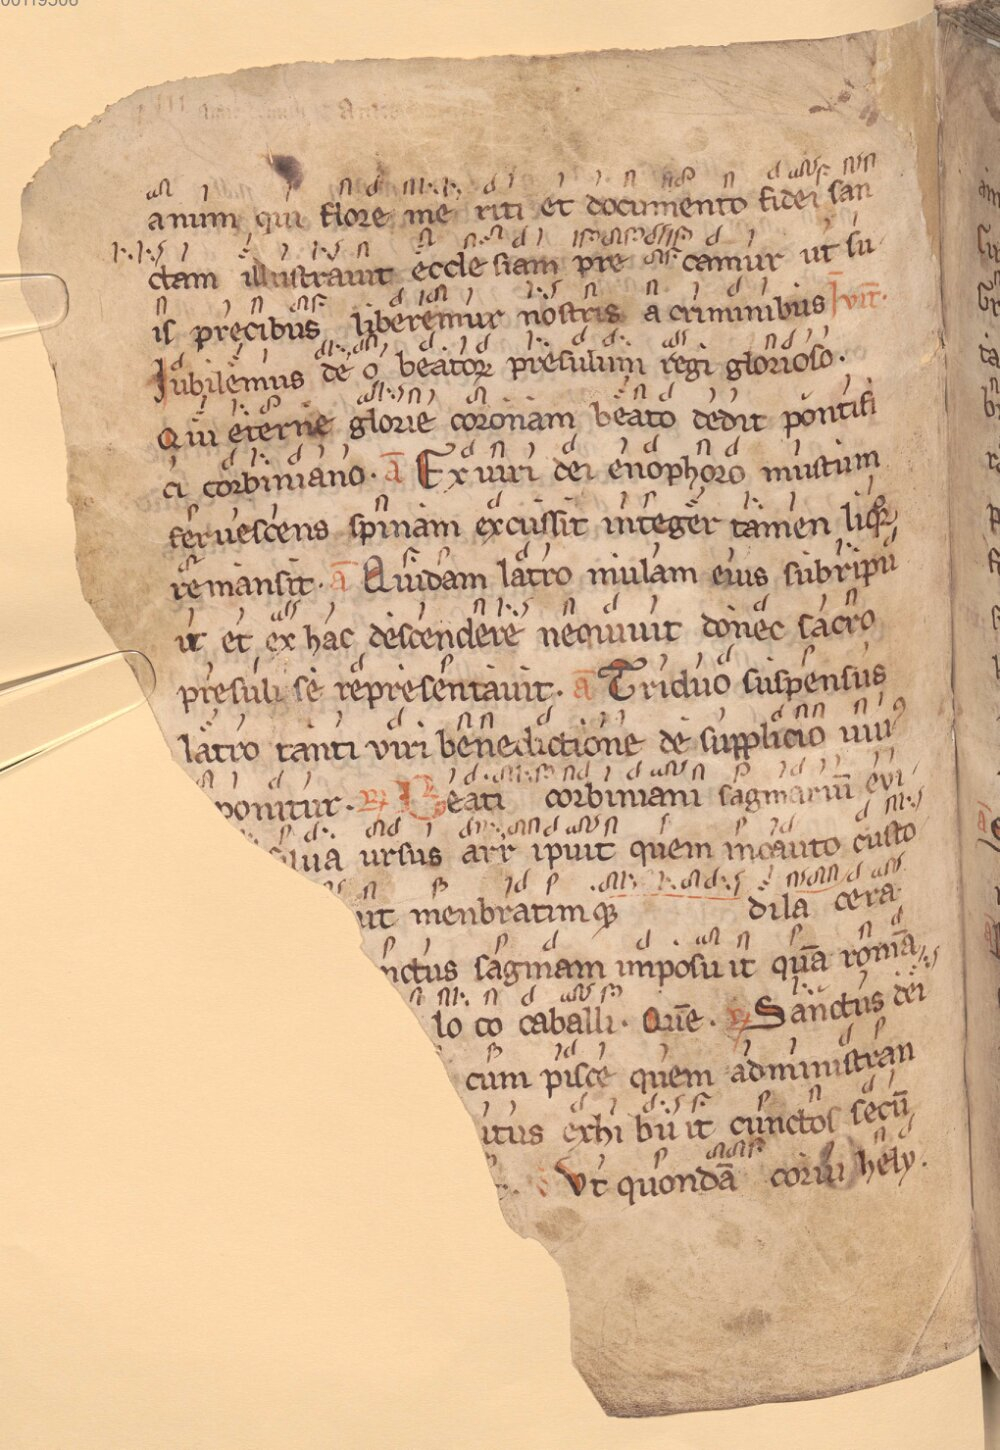 00119508
anum qui flore me riti et documento fidei san
ctam illustrauit eccle siam pre camur ut su
is precibus liberemur nostris a criminibus Jvit̄.
Jubilemus de o beatoꝝ presulum regi glorioso.
Qui eterne glorie coronam beato dedit pontifi
ci corbiniano. a̅ Ex uiri dei enophoro mustum
feruescens spinam excussit integer tamen liq̅r
remansit. a̅ Quidam latro mulam eius subripu
it et ex hac descendere nequiuit donec sacro
presuli se representauit. a̅ Triduo suspensus
latro tanti viri benedictione de supplicio uiuꝰ
ponitur. ℞ Beati corbiniani sagmariu̅ e vi
silua ursus arr ipuit quem incauto custo
uit menbratimqꝫ dila cera
nctus sagmam imposu it qua̅ roma̅
lo co caballi. Que̅. ℞ Sanctus dei
cum pisce quem administran
itus exhi bu it cunctos secu̅
Vt quonda̅ corui hely.